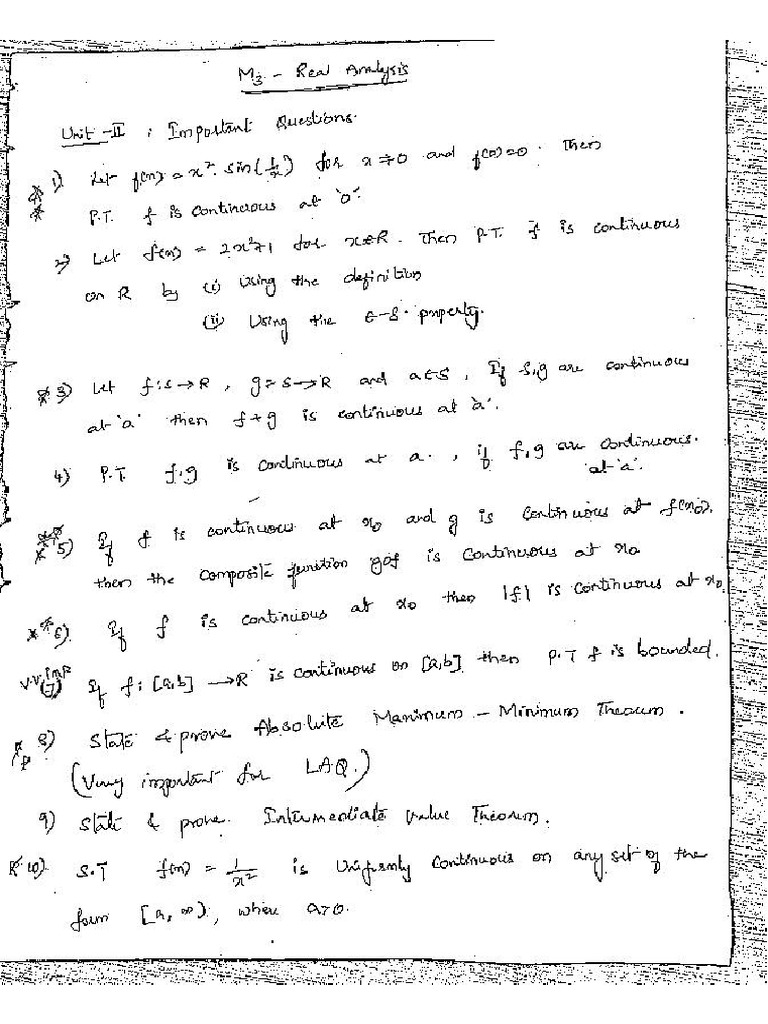 M3 - Real Analysis
Unit - II : Important Questions.
1) Let f(x) = x². sin(1/x) for x ≠ 0 and f(0) = 0. Then
P.T. f is continuous at '0'.
2) Let f(x) = 2x²+1 for x∈R. Then P.T. f is continuous
on R by (i) Using the definition
(ii) Using the ∈-S- property.
3) Let f:S→R, g=S→R and a∈S, If f,g are continuous
at 'a' then f+g is continuous at 'a'.
4) P.T. f.g is continuous at a., if f,g are continuous.
at 'a'.
5) If f is continuous at x₀ and g is continuous at f(x₀).
then the composite function gof is continuous at x₀
6) If f is continuous at x₀ then |f| is continuous at x₀
V.V.imp
(7) If f: [a,b] → R is continuous on [a,b] then P.T f is bounded.
8) State & prove Absolute Maximum - Minimum Theorem.
(Very important for LAQ.)
9) State & prove. Intermediate value Theorem.
10) S.T f(x) = 1/x² is Uniformly continuous on any set of the
form [a, ∞), where a>0.